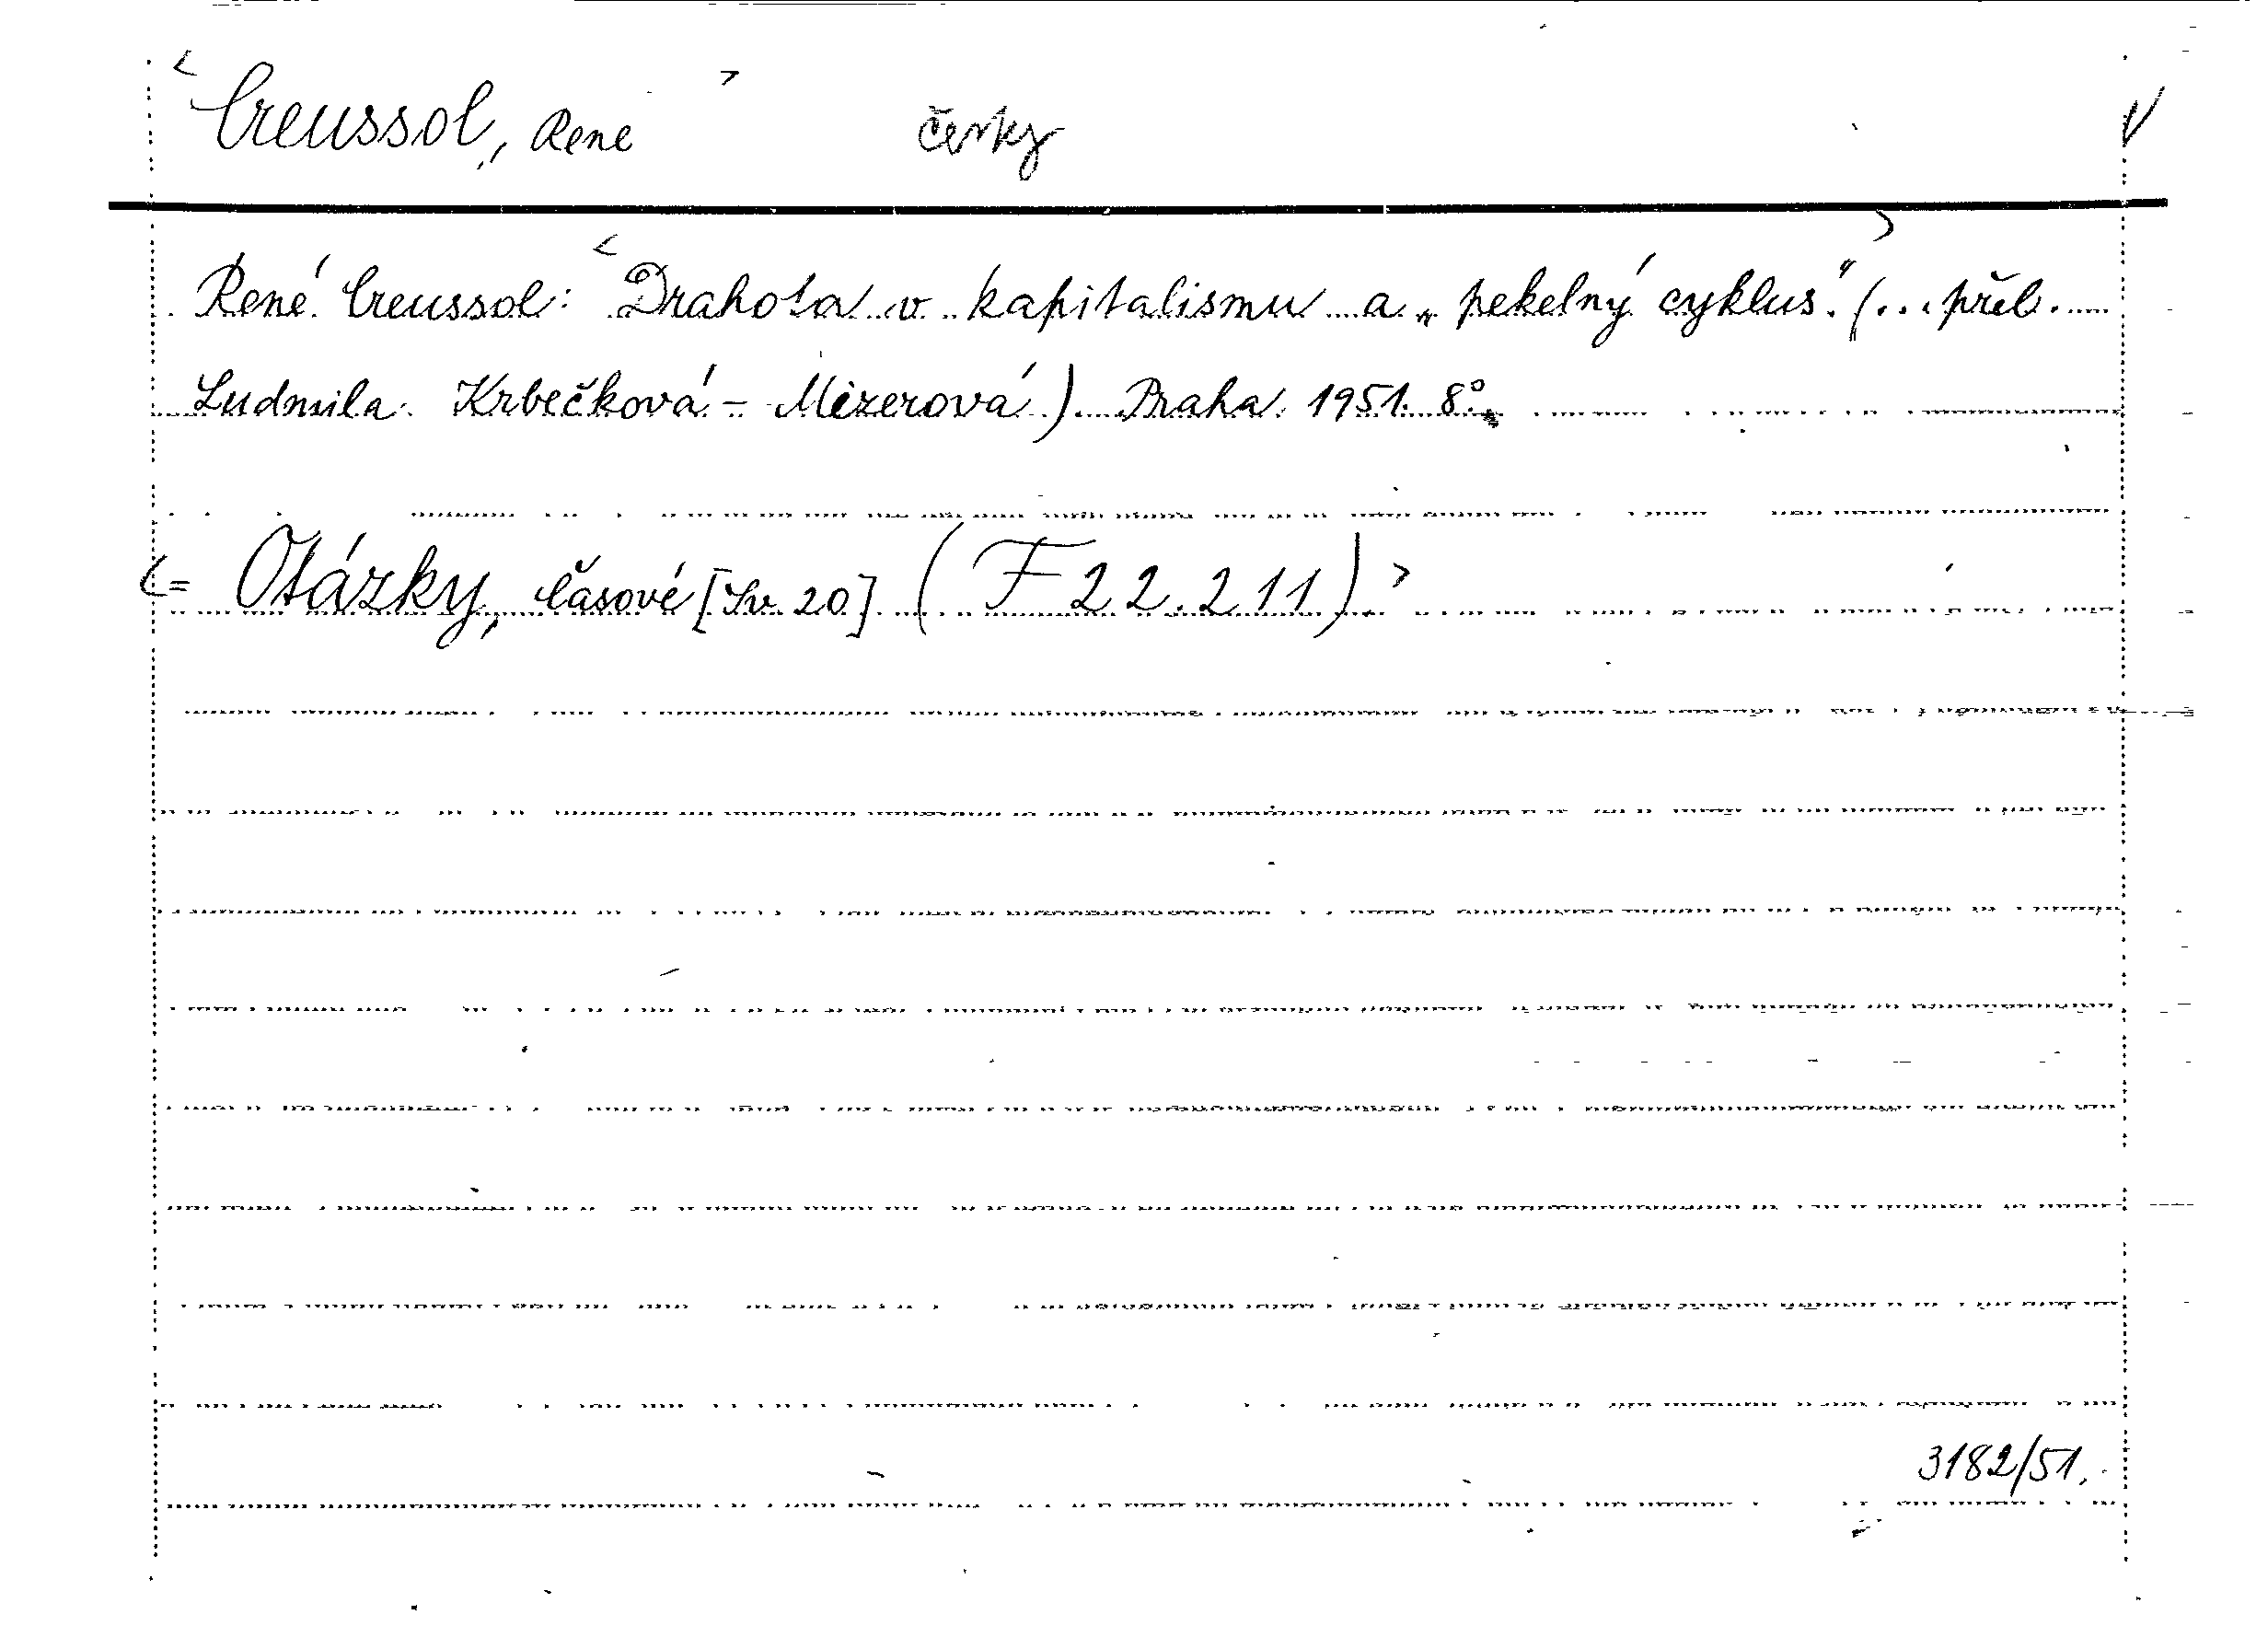 < Creussol, René > česky V
René Creussol: <Drahota v kapitalismu a „pekelný cyklus“> (... přel.
Ludmila Krbečková - Mizerová). Praha 1951. 8°.
<= Otázky, časové [Sv. 20] (F 22.211)>
3182/51.